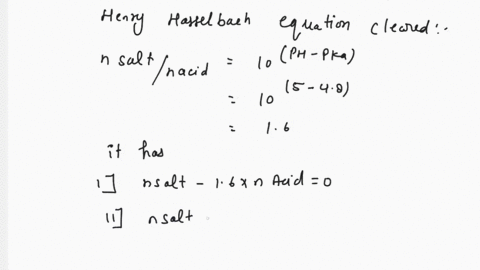 Henry Hasselbach equation cleared:-
n salt/nacid = 10 (PH-PKa)
= 10 (5-4.8)
= 1.6
it has
I] nsalt - 1.6 x n Acid = 0
II] nsalt